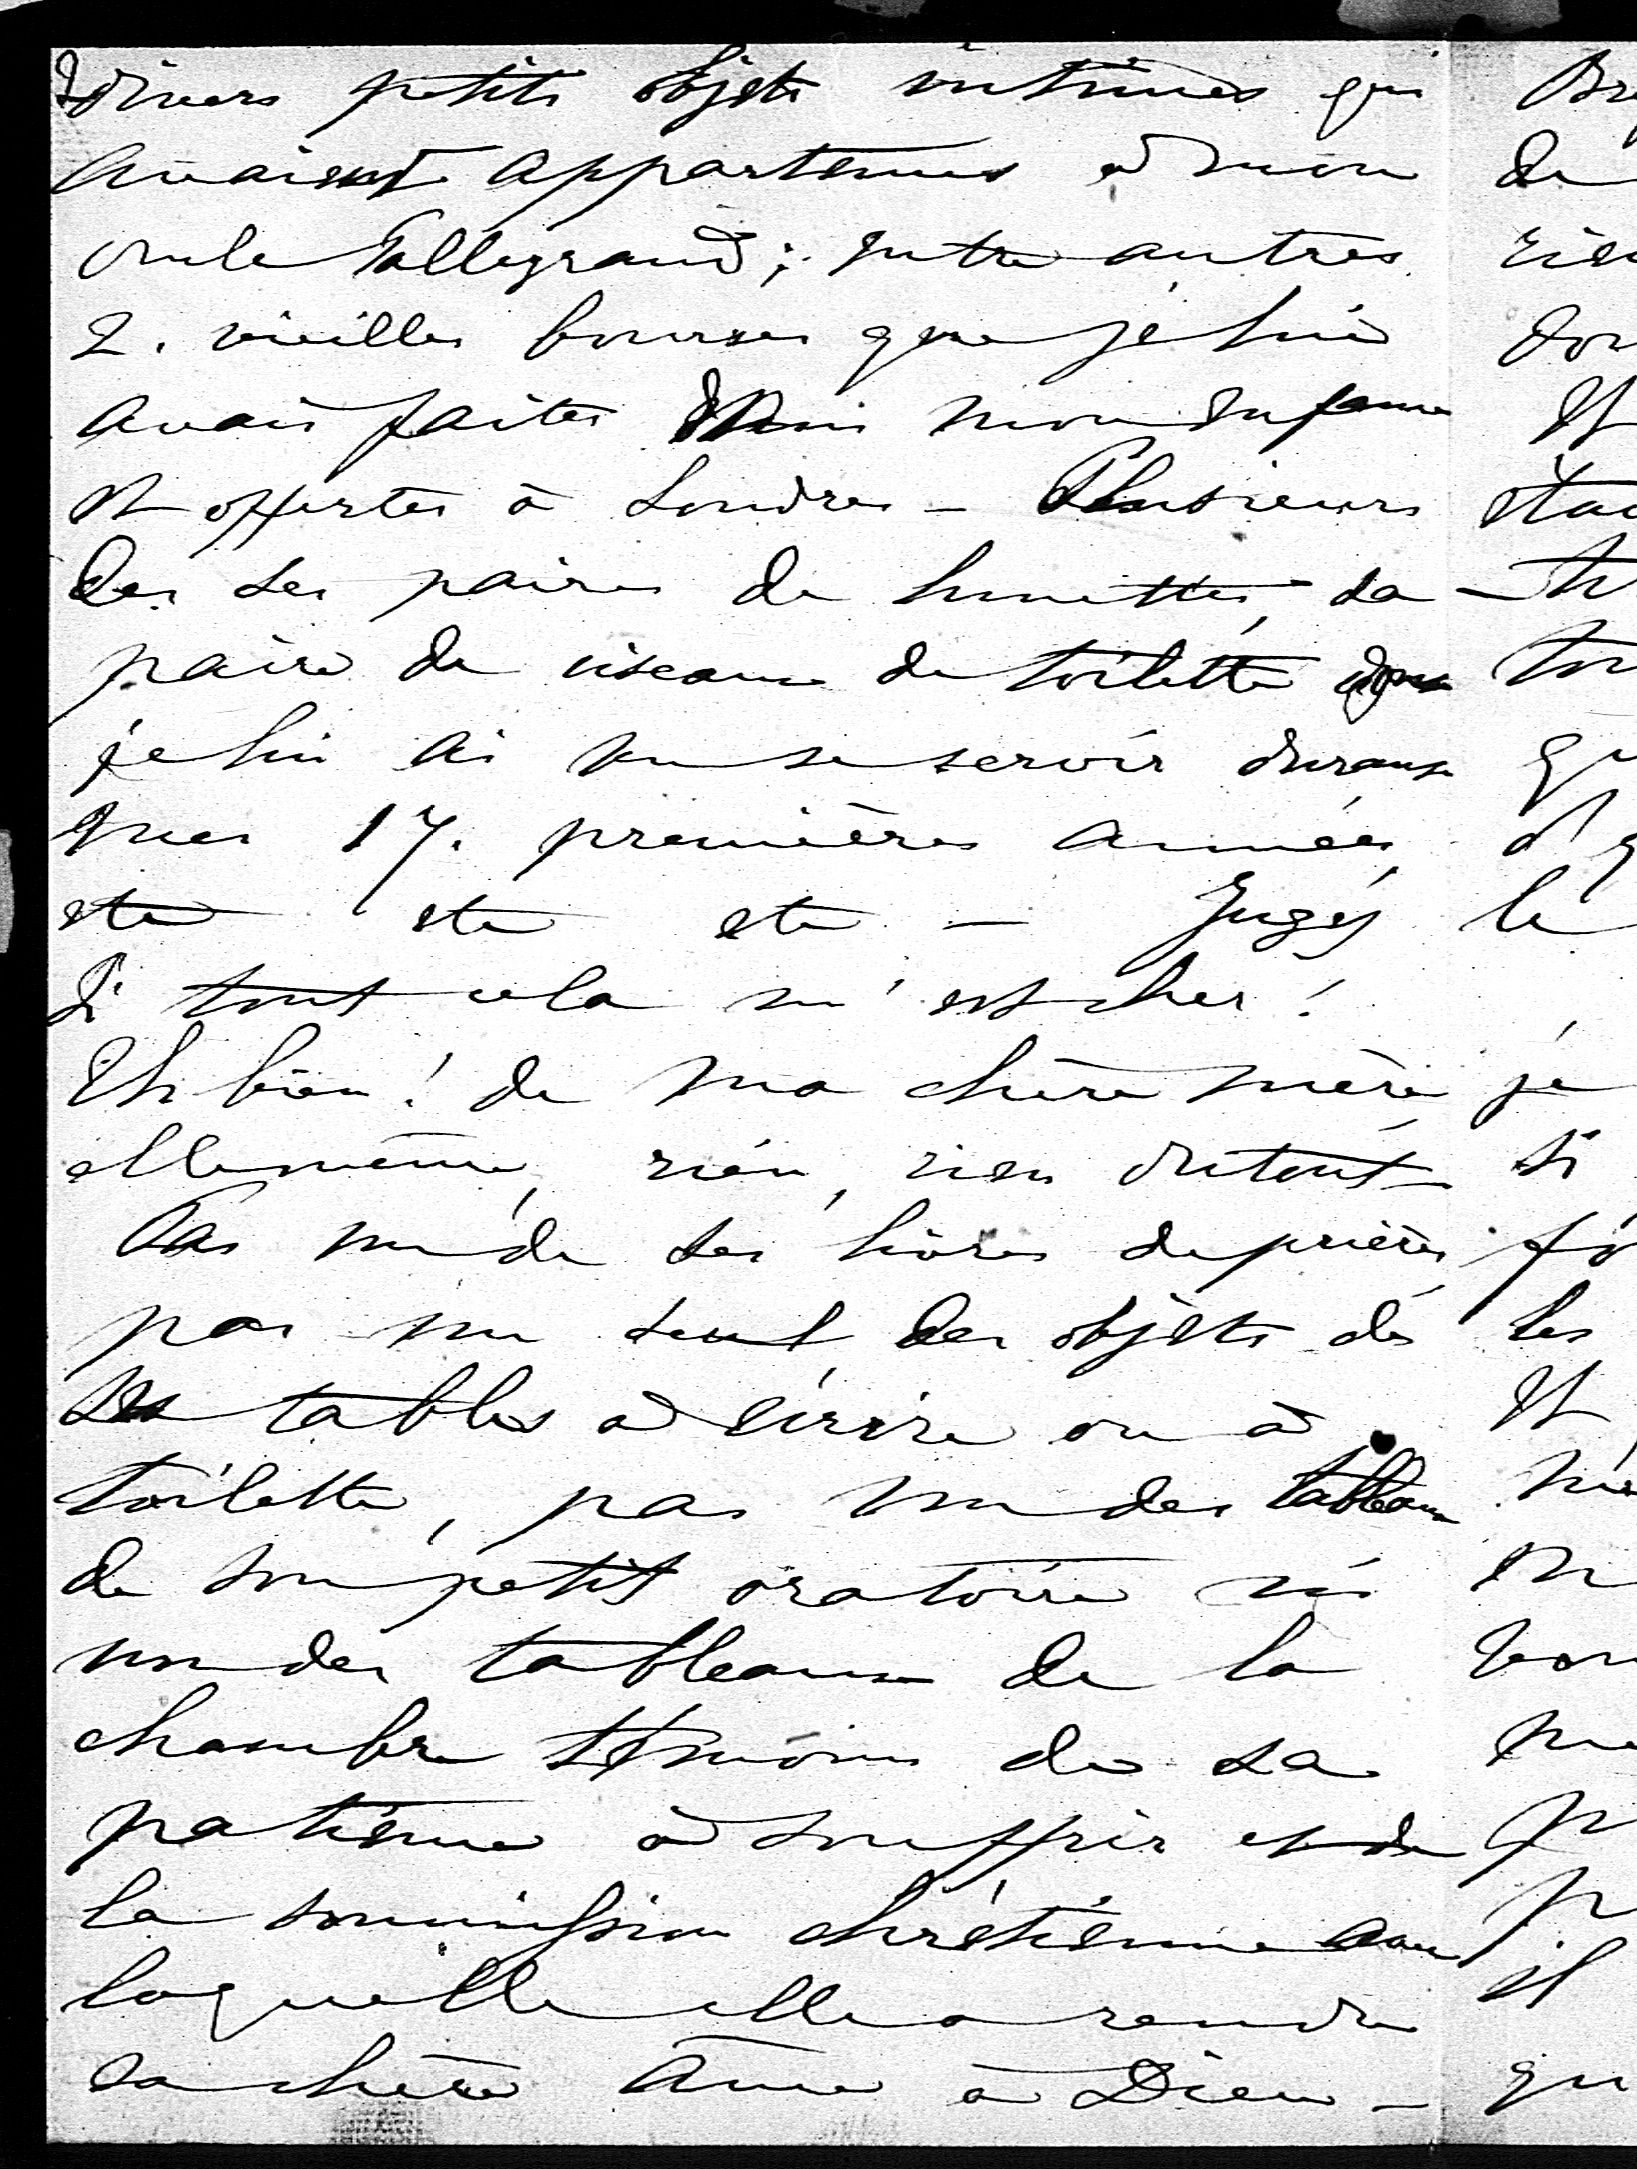 divers petits objets intimes qui
avaient appartenus à mon
oncle Talleyrand; entre autres
2. vieilles bourses que je lui
avais faites dans mon enfance
et offertes à Londres – Plusieurs
des ses paires de lunettes, sa
paire de ciseaux de toilette dont
je lui ai vu se servir durant
mes 17. premières années,
etc etc etc – Jugez
si tout cela m'est cher!
Eh bien! de ma chère mère
elle même, rien, rien du tout –
Pas un de ses livres de prières,
pas un seul des objets de
ses tables à écrire ou à
toilette, pas un des tableaux
de son petit oratoire ni
un des tableaux de la
chambre témoins de sa
patience à souffrir et de
la soumission chrétienne avec
laquelle elle a rendu
sa chère âme à Dieu –